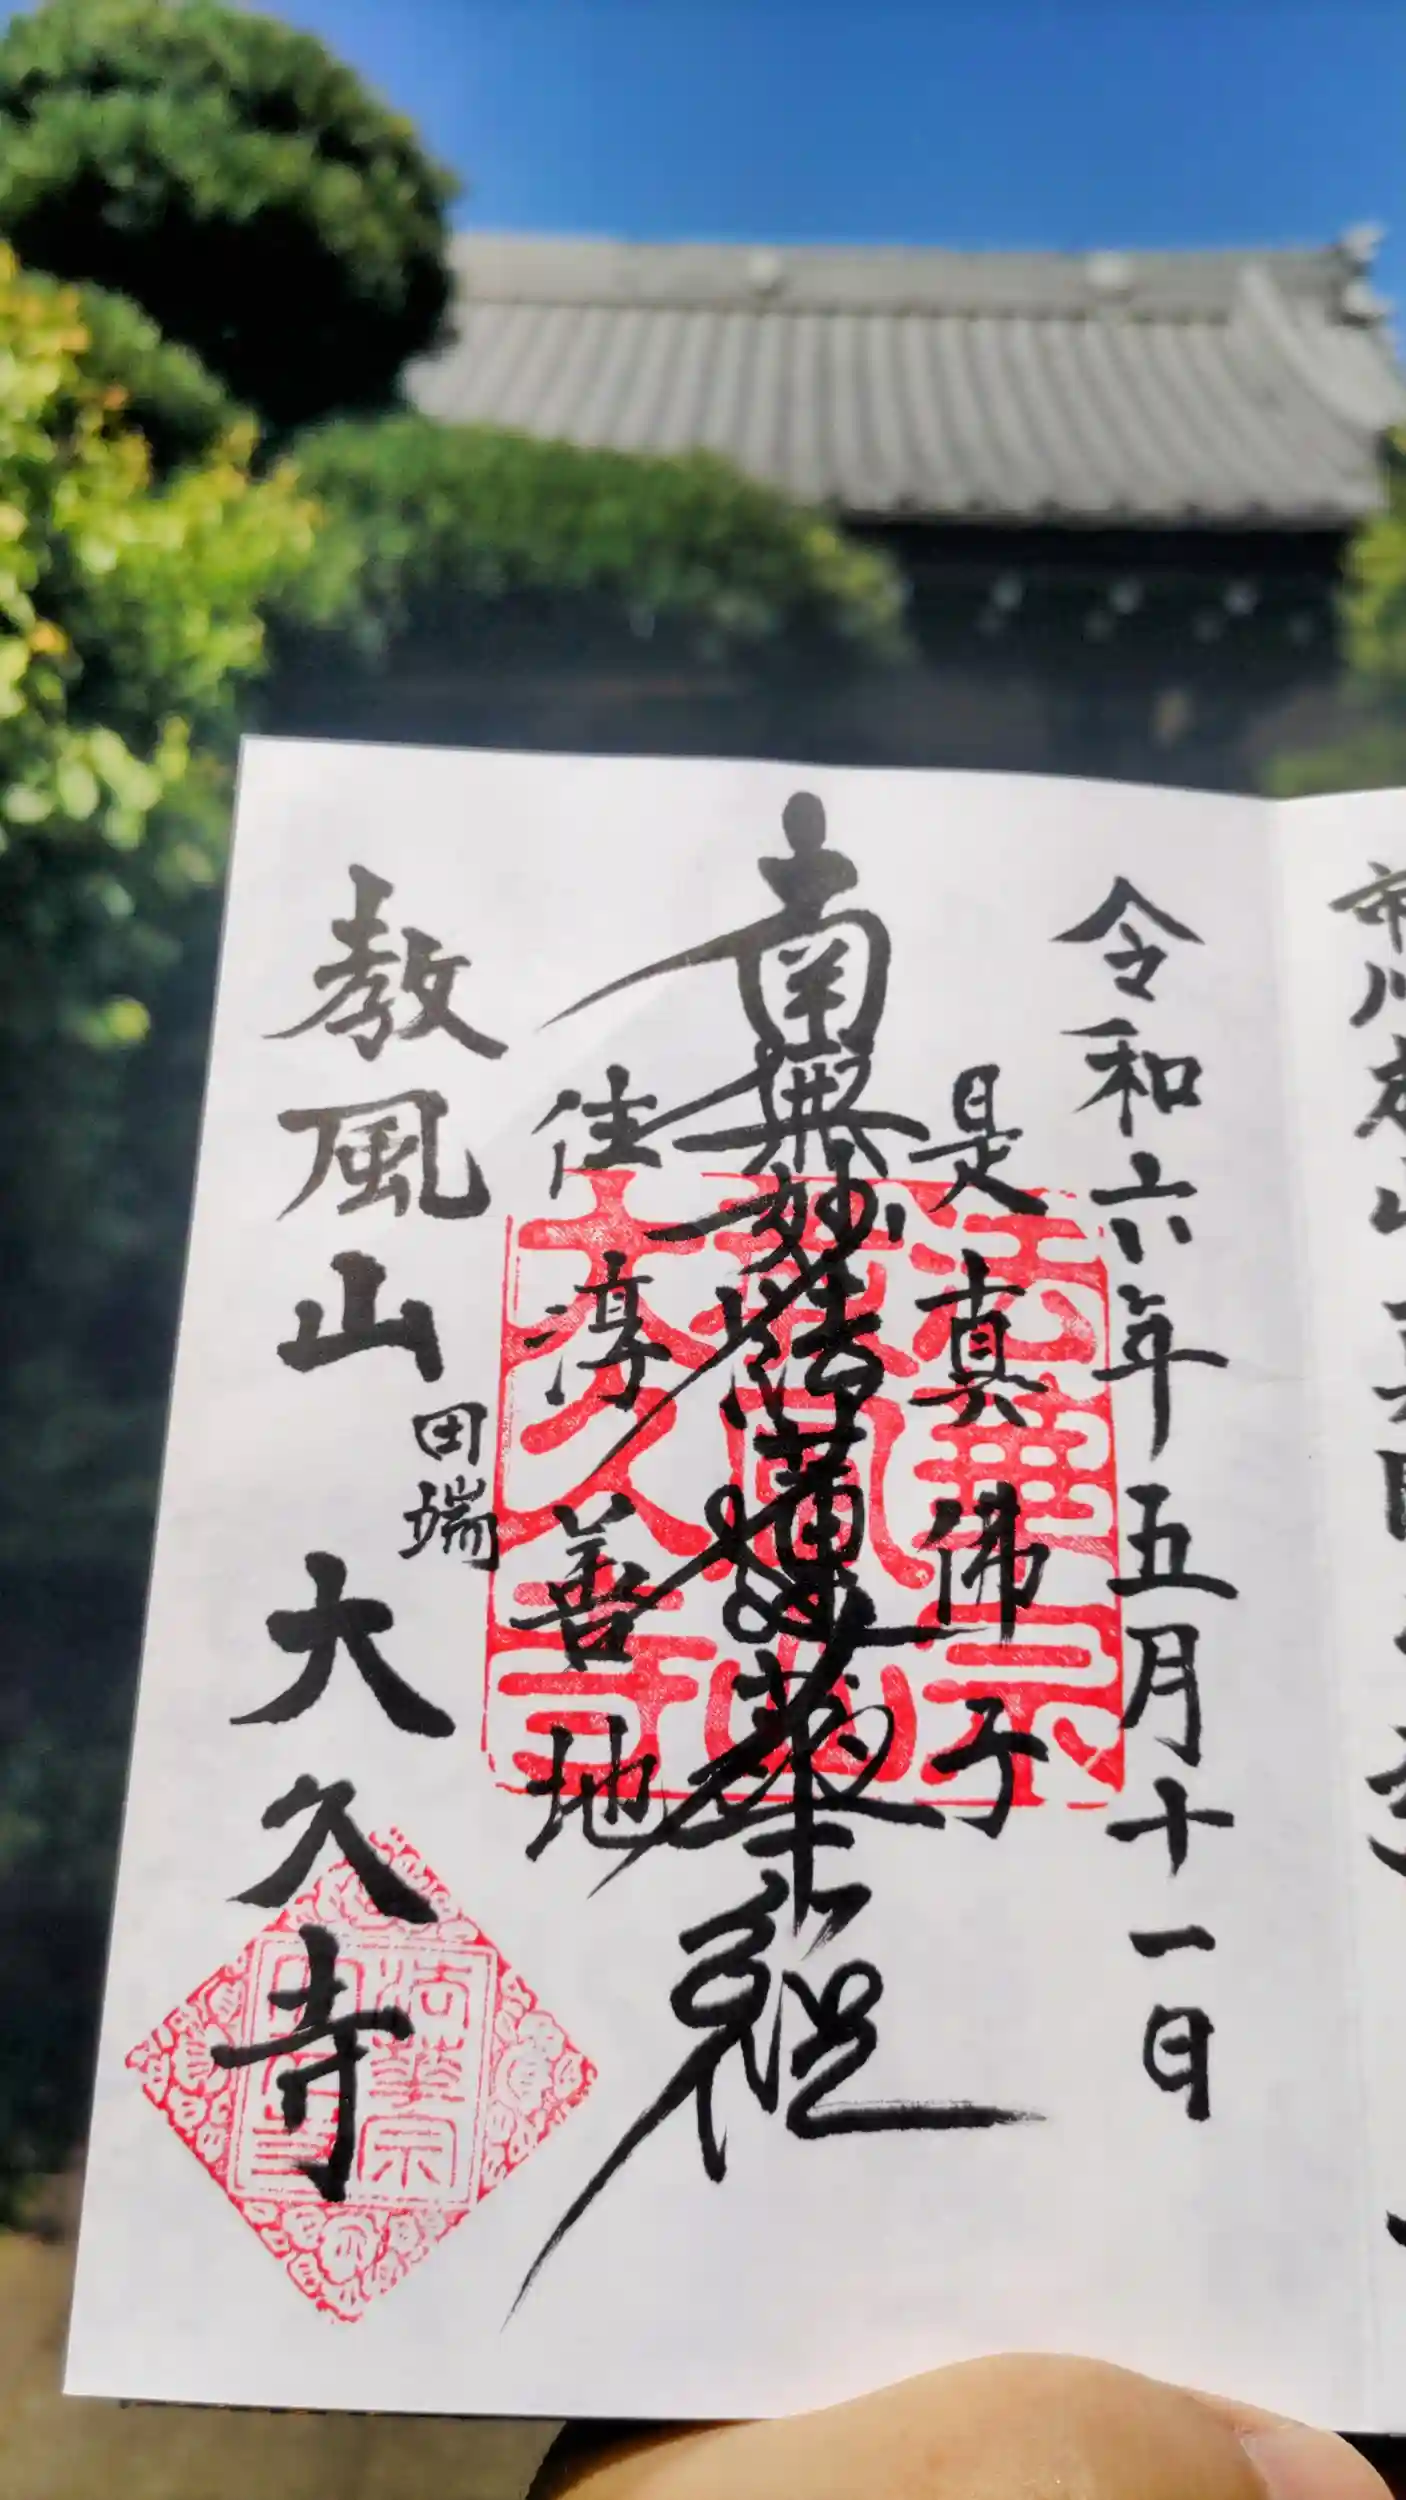 令和六年五月十一日
是真佛子
南無妙法蓮華経
住淳善地
田端
教風山 大久寺
法華宗
教風山
大久寺
法華宗